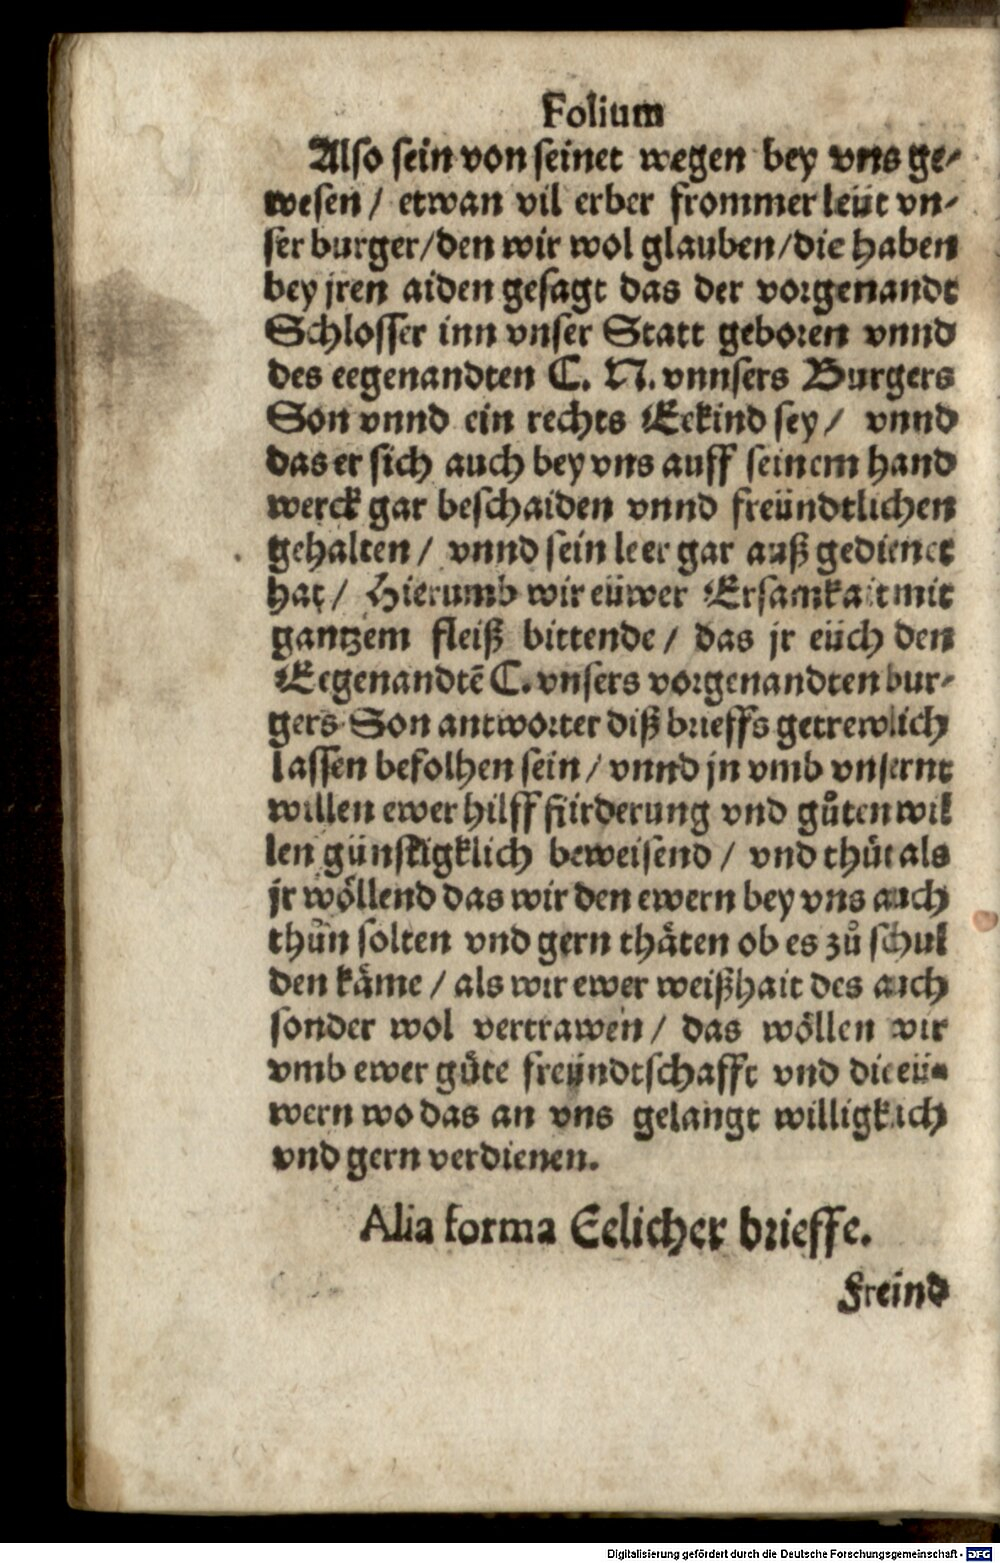 Folium
Also sein von seinet wegen bey vns ge-
wesen / etwan vil erber frommer leüt vn-
ser burger / den wir wol glauben / die haben
bey jren aiden gesagt das der vorgenandt
Schlosser inn vnser Statt geboren vnnd
des eegenandten C. N. vnnsers Burgers
Son vnnd ein rechts Eekind sey / vnnd
das er sich auch bey vns auff seinem hand
werck gar beschaiden vnnd freündtlichen
gehalten / vnnd sein leer gar auß gedienet
hat / Hierumb wir eüwer Ersamkait mit
gantzem fleiß bittende / das jr eüch den
Eegenandtē C. vnsers vorgenandten bur-
gers Son antworter diß brieffs getrewlich
lassen befolhen sein / vnnd jn vmb vnsernt
willen ewer hilff fürderung vnd gůten wil
len günstigklich beweisend / vnd thůt als
jr wöllend das wir den ewern bey vns auch
thůn solten vnd gern thäten ob es zů schul
den käme / als wir ewer weißhait des auch
sonder wol vertrawen / das wöllen wir
vmb ewer gůte freündtschafft vnd die eü-
wern wo das an vns gelangt willigklich
vnd gern verdienen.
Alia forma Eelicher brieffe.
Freind
Digitalisierung gefördert durch die Deutsche Forschungsgemeinschaft - DFG